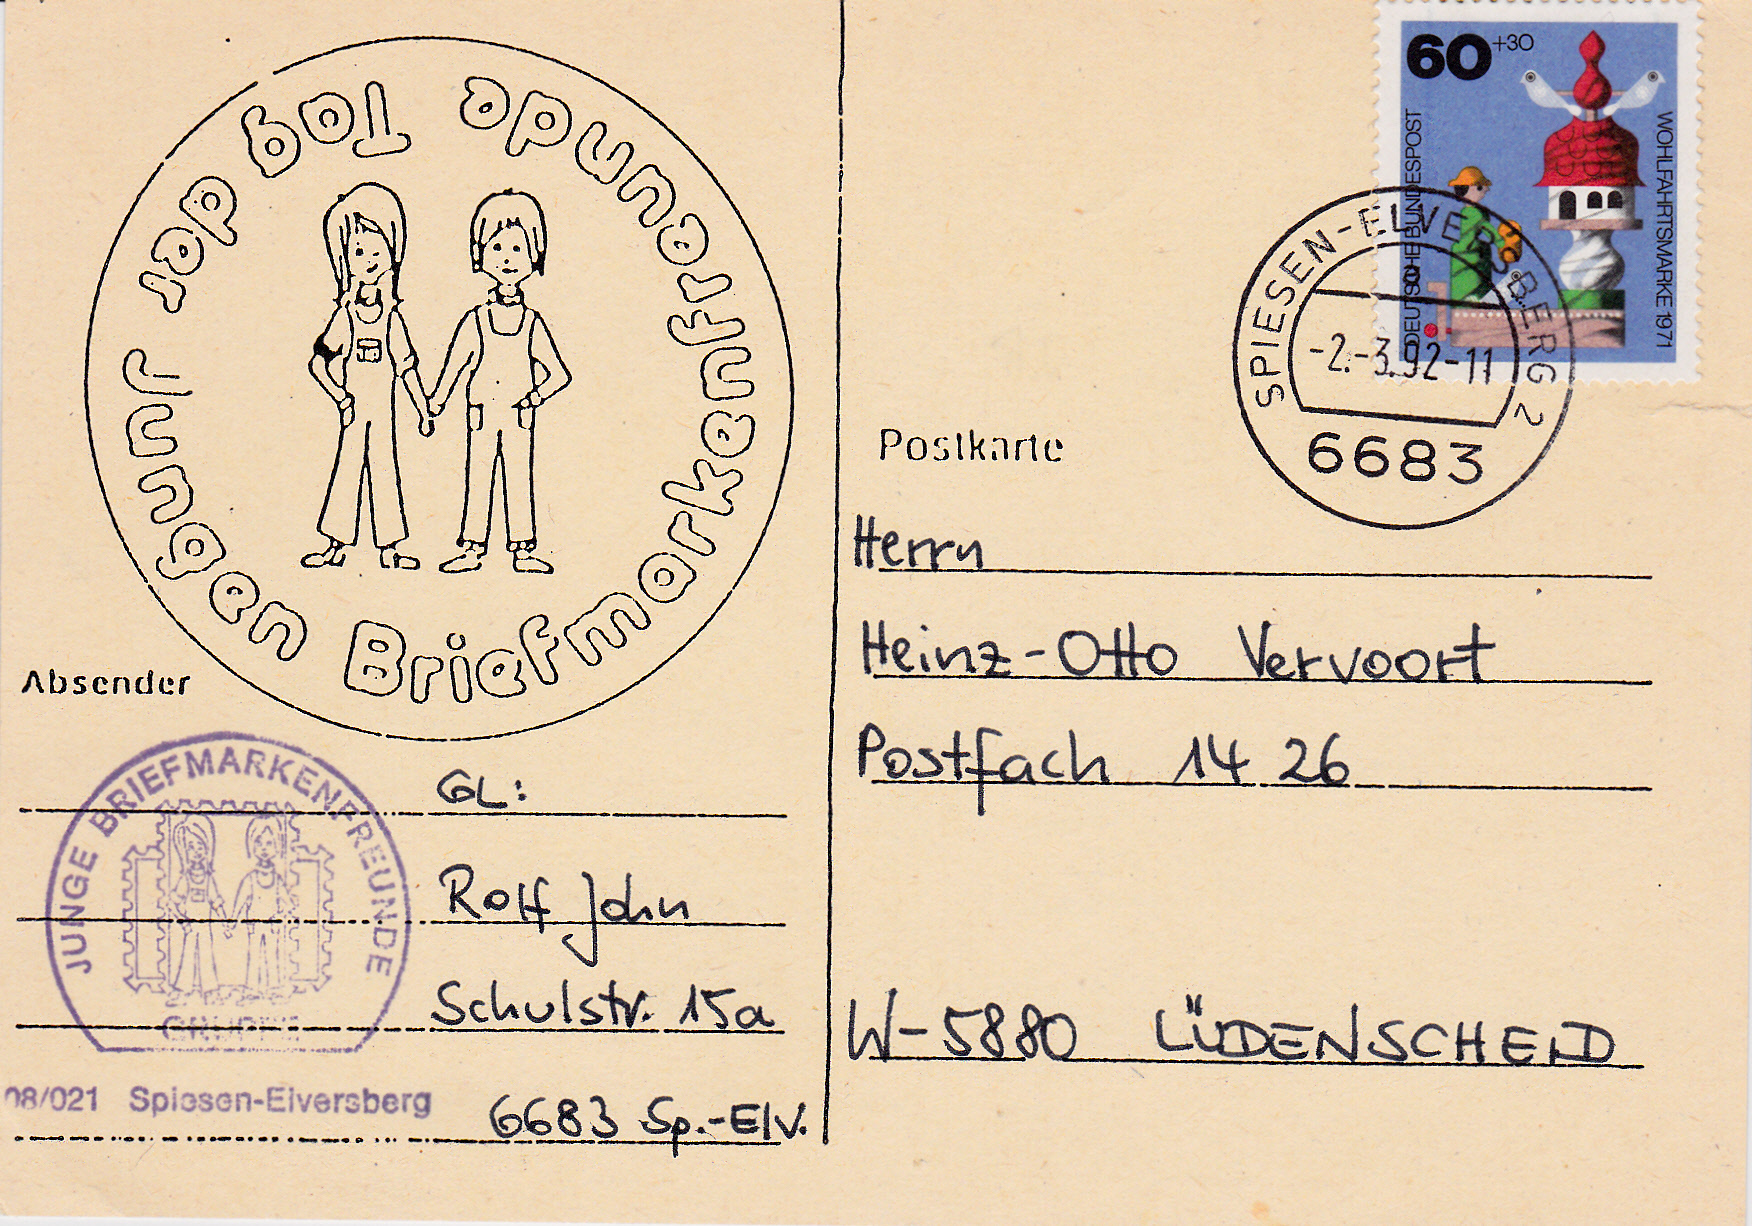 Tag der Jungen Brieffmarkenfreunde
Absender
JUNGE BRIEFMARKENFREUNDE
GRUPPE
08/021 Spiesen-Elversberg
GL:
Rolf John
Schulstr. 15a
6683 Sp.-Elv.
60 +30
DEUTSCHE BUNDESPOST
WOHLFAHRTSMARKE 1971
SPIESEN-ELVERSBERG 2
-2.-3.92-11
6683
Postkarte
Herrn
Heinz-Otto Vervoort
Postfach 14 26
W-5880 LÜDENSCHEID